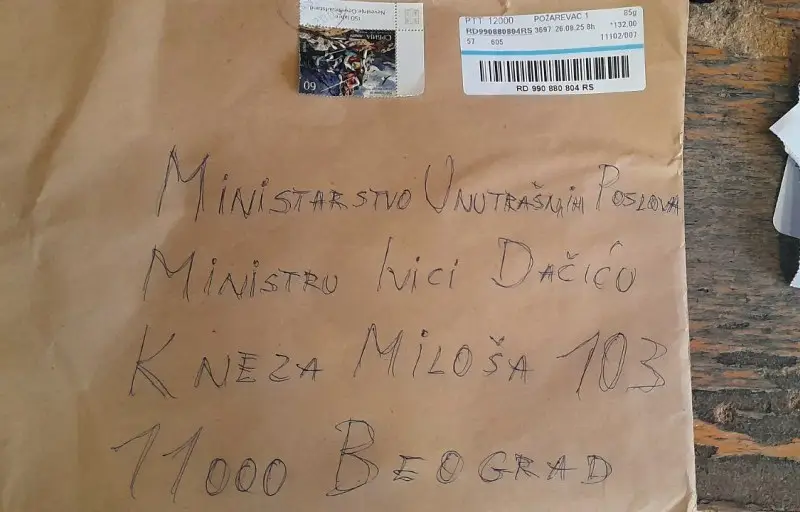 PTT 12000 POŽAREVAC 1 85g
RD990880804RS 3697 26.08.25 8h *132.00
57 605 11102/007
RD 990 880 804 RS
СРБИЈА
60
MINISTARSTVO UNUTRAŠNJIH POSLOVA
MINISTRU IVICI DAČIĆU
KNEZA MILOŠA 103
11000 BEOGRAD